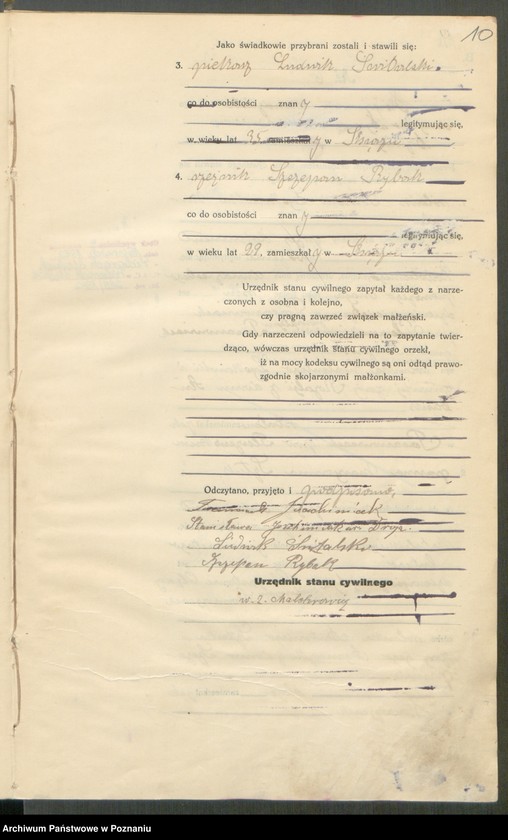 10
Jako świadkowie przybrani zostali i stawili się:
3. piekarz Ludwik
co do osobistości znany
legitymując się,
w wieku lat 35 zamieszkały w Książu
4. rzeźnik Szczepan Rybak
co do osobistości znany
legitymując się,
w wieku lat 29. zamieszkały w Książu
Urzędnik stanu cywilnego zapytał każdego z narze-
czonych z osobna i kolejno,
czy pragną zawrzeć związek małżeński.
Gdy narzeczeni odpowiedzieli na to zapytanie twier-
dząco, wówczas urzędnik stanu cywilnego orzekł,
iż na mocy kodeksu cywilnego są oni odtąd prawo-
zgodnie skojarzonymi małżonkami.
Odczytano, przyjęto i podpisano,
Stanisława
Ludwik
Szczepan Rybak
Urzędnik stanu cywilnego
w. z.
Archiwum Państwowe w Poznaniu